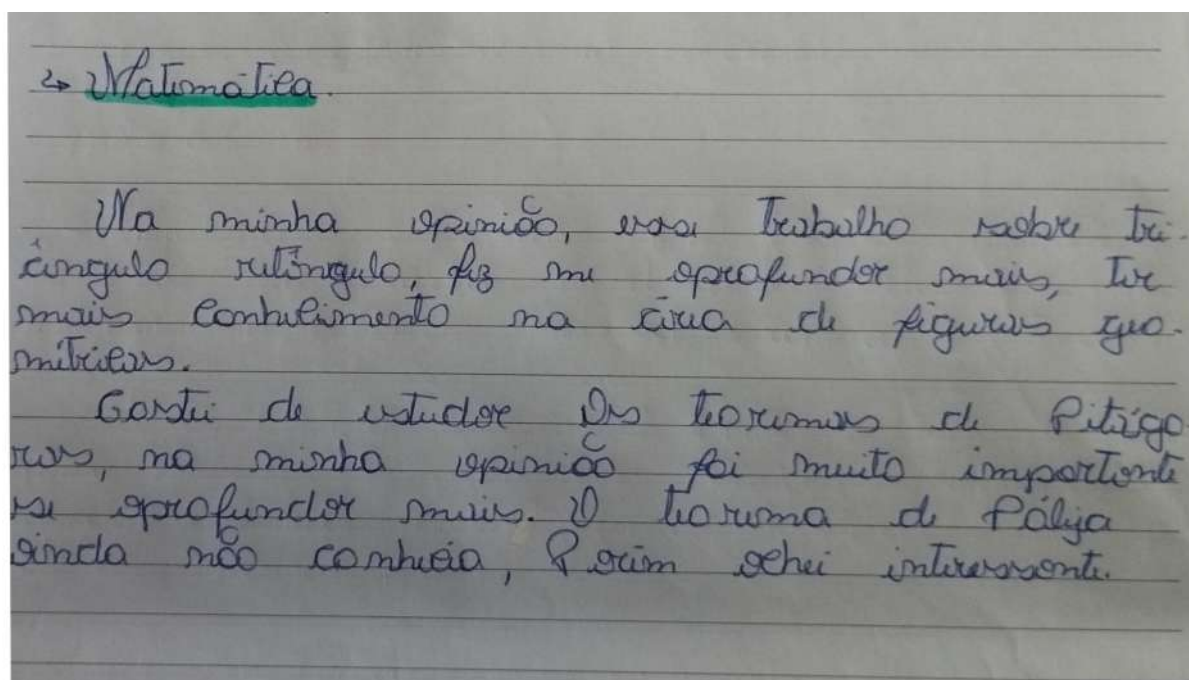 ↳ Matemática.
Na minha opinião, esse trabalho sobre tri-
ângulo retângulo, fez me aprofundar mais, ter
mais conhecimento na área de figuras geo-
métricas.
Gostei de estudar Os teoremas de Pitágo
ras, na minha opinião foi muito importante
se aprofundar mais. O teorema de Pólya
ainda não conhecia, Porém achei interessante.